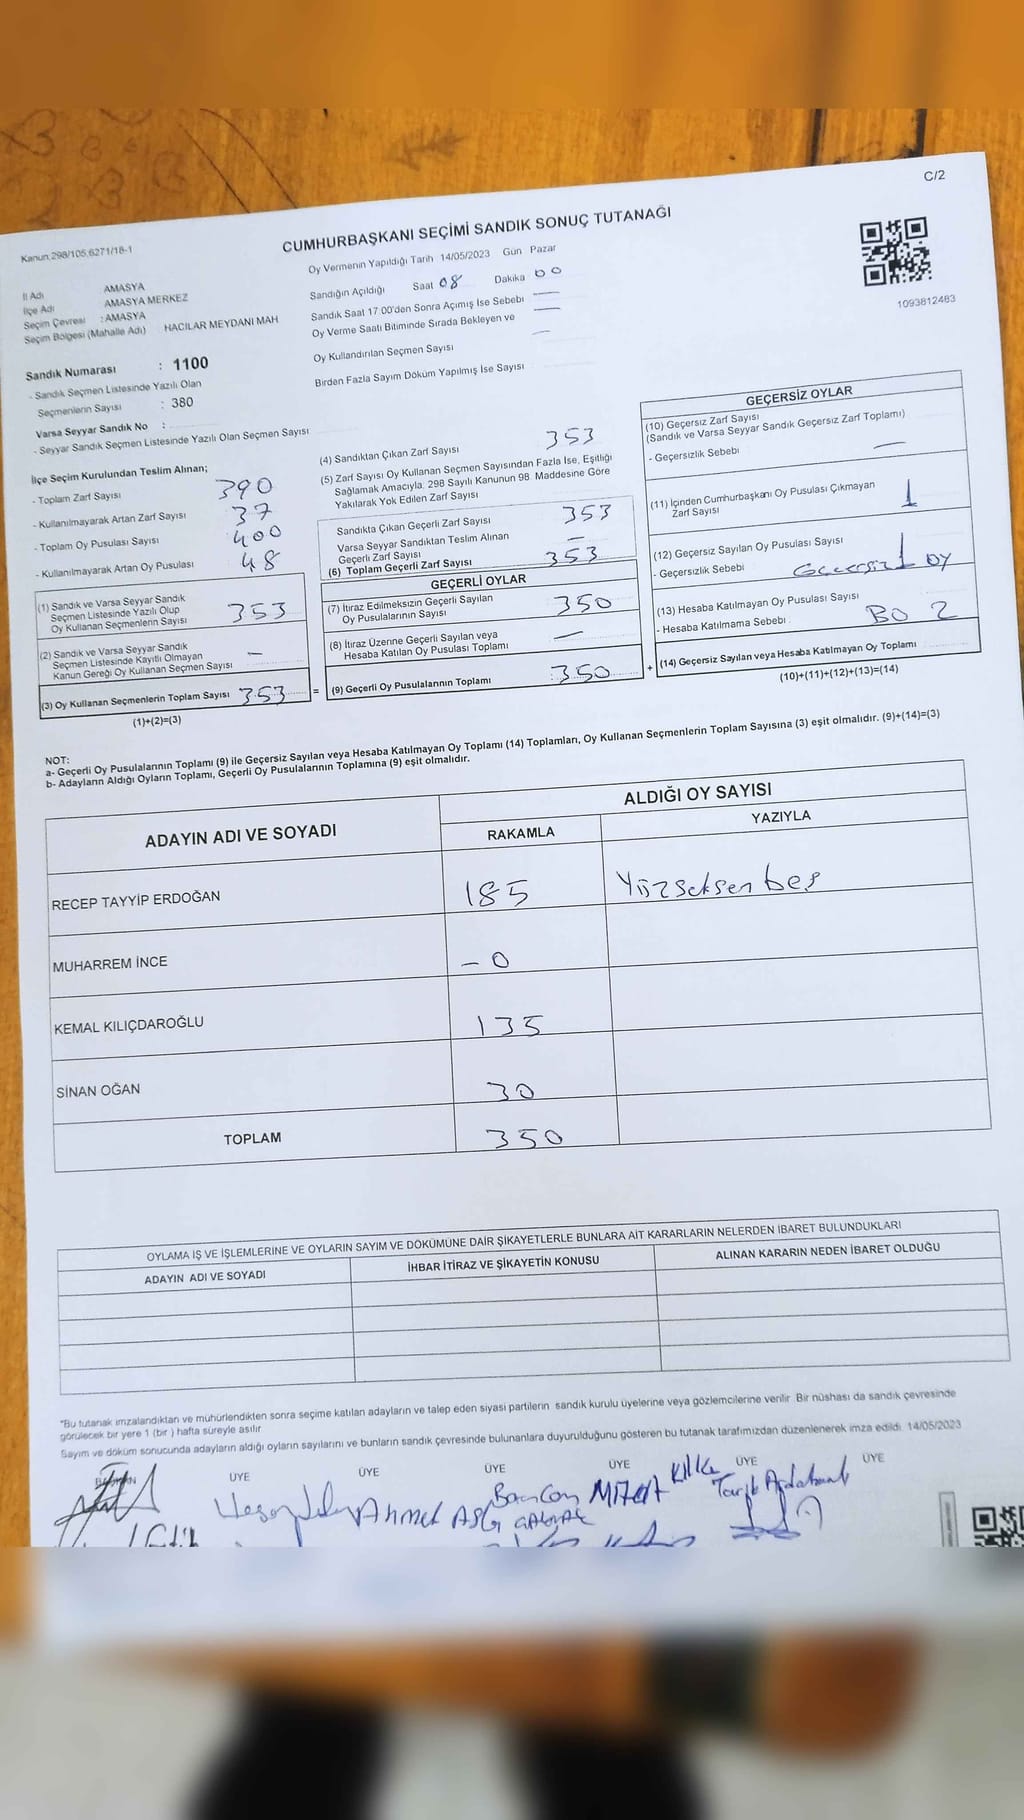 C/2
Kanun,298/105,6271/18-1
CUMHURBAŞKANI SEÇİMİ SANDIK SONUÇ TUTANAĞI
1093812483
İl Adı AMASYA
İlçe Adı AMASYA MERKEZ
Seçim Çevresi : AMASYA
Seçim Bölgesi (Mahalle Adı) HACILAR MEYDANI MAH
Sandık Numarası : 1100
- Sandık Seçmen Listesinde Yazılı Olan
Seçmenlerin Sayısı : 380
Varsa Seyyar Sandık No :
- Seyyar Sandık Seçmen Listesinde Yazılı Olan Seçmen Sayısı
Oy Vermenin Yapıldığı Tarih 14/05/2023 Gün Pazar
Sandığın Açıldığı Saat 08 Dakika 00
Sandık Saat 17 00'den Sonra Açımış İse Sebebi —
Oy Verme Saati Bitiminde Sırada Bekleyen ve —
Oy Kullandırılan Seçmen Sayısı —
Birden Fazla Sayım Döküm Yapılmış İse Sayısı
İlçe Seçim Kurulundan Teslim Alınan;
- Toplam Zarf Sayısı 390
- Kullanılmayarak Artan Zarf Sayısı 37
- Toplam Oy Pusulası Sayısı 400
- Kullanılmayarak Artan Oy Pusulası 48
(1) Sandık ve Varsa Seyyar Sandık
Seçmen Listesinde Yazılı Olup
Oy Kullanan Seçmenlerin Sayısı 353
(2) Sandık ve Varsa Seyyar Sandık
Seçmen Listesinde Kayıtlı Olmayan
Kanun Gereği Oy Kullanan Seçmen Sayısı —
(3) Oy Kullanan Seçmenlerin Toplam Sayısı 353 =
(1)+(2)=(3)
(4) Sandıktan Çıkan Zarf Sayısı 353
(5) Zarf Sayısı Oy Kullanan Seçmen Sayısından Fazla İse, Eşitliği
Sağlamak Amacıyla, 298 Sayılı Kanunun 98. Maddesine Göre
Yakılarak Yok Edilen Zarf Sayısı
Sandıkta Çıkan Geçerli Zarf Sayısı 353
Varsa Seyyar Sandıktan Teslim Alınan
Geçerli Zarf Sayısı —
(6) Toplam Geçerli Zarf Sayısı 353
GEÇERLİ OYLAR
(7) İtiraz Edilmeksizin Geçerli Sayılan
Oy Pusulalarının Sayısı 350
(8) İtiraz Üzerine Geçerli Sayılan veya
Hesaba Katılan Oy Pusulası Toplamı —
(9) Geçerli Oy Pusulalarının Toplamı : 350 +
GEÇERSİZ OYLAR
(10) Geçersiz Zarf Sayısı
(Sandık ve Varsa Seyyar Sandık Geçersiz Zarf Toplamı)
- Geçersizlik Sebebi —
(11) İçinden Cumhurbaşkanı Oy Pusulası Çıkmayan
Zarf Sayısı 1
(12) Geçersiz Sayılan Oy Pusulası Sayısı
- Geçersizlik Sebebi Geçersiz 1 oy
(13) Hesaba Katılmayan Oy Pusulası Sayısı
- Hesaba Katılmama Sebebi BO 2
(14) Geçersiz Sayılan veya Hesaba Katılmayan Oy Toplamı
(10)+(11)+(12)+(13)=(14)
NOT:
a- Geçerli Oy Pusulalarının Toplamı (9) ile Geçersiz Sayılan veya Hesaba Katılmayan Oy Toplamı (14) Toplamları, Oy Kullanan Seçmenlerin Toplam Sayısına (3) eşit olmalıdır. (9)+(14)=(3)
b- Adayların Aldığı Oyların Toplamı, Geçerli Oy Pusulalarının Toplamına (9) eşit olmalıdır.
ADAYIN ADI VE SOYADI
ALDIĞI OY SAYISI
RAKAMLA YAZIYLA
RECEP TAYYİP ERDOĞAN 185 Yüzseksenbeş
MUHARREM İNCE – 0
KEMAL KILIÇDAROĞLU 135
SİNAN OĞAN 30
TOPLAM 350
OYLAMA İŞ VE İŞLEMLERİNE VE OYLARIN SAYIM VE DÖKÜMÜNE DAİR ŞİKAYETLERLE BUNLARA AİT KARARLARIN NELERDEN İBARET BULUNDUKLARI
ADAYIN ADI VE SOYADI İHBAR İTİRAZ VE ŞİKAYETİN KONUSU ALINAN KARARIN NEDEN İBARET OLDUĞU
*Bu tutanak imzalandıktan ve mühürlendikten sonra seçime katılan adayların ve talep eden siyasi partilerin sandık kurulu üyelerine veya gözlemcilerine verilir. Bir nüshası da sandık çevresinde
görülecek bir yere 1 (bir ) hafta süreyle asılır.
Sayım ve döküm sonucunda adayların aldığı oyların sayılarını ve bunların sandık çevresinde bulunanlara duyurulduğunu gösteren bu tutanak tarafımızdan düzenlenerek imza edildi. 14/05/2023
BAŞKAN ÜYE ÜYE ÜYE ÜYE ÜYE ÜYE
Ahmet